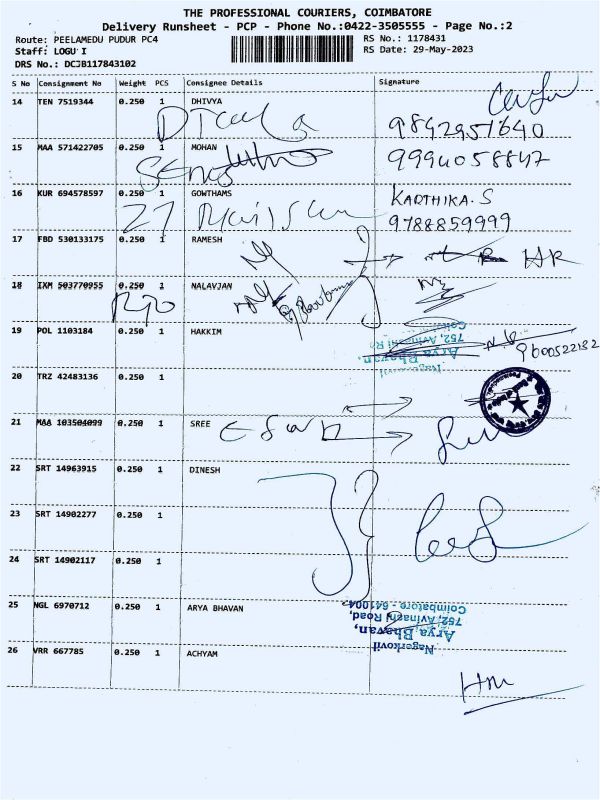 THE PROFESSIONAL COURIERS, COIMBATORE
Delivery Runsheet - PCP - Phone No.:0422-3505555 - Page No.:2
Route: PEELAMEDU PUDUR PC4
RS No.: 1178431
Staff: LOGU I
RS Date: 29-May-2023
DRS No.: DCJB117843102
S No Consignment No Weight PCS Consignee Details Signature
14 TEN 7519344 0.250 1 DHIVYA
9842951640
15 MAA 571422705 0.250 1 MOHAN
9994058847
16 KUR 694578597 0.250 1 GOWTHAMS
KARTHIKA.S
27
9788859999
17 FBD 530133175 0.250 1 RAMESH
18 IXM 503770955 0.250 1 NALAVJAN
19 POL 1103184 0.250 1 HAKKIM
9600522182
Nagerkovil
Arya Bhavan,
752, Avinashi Ro
Coi
20 TRZ 42483136 0.250 1
21 MAA 103504099 0.250 1 SREE
22 SRT 14963915 0.250 1 DINESH
23 SRT 14902277 0.250 1
24 SRT 14902117 0.250 1
25 NGL 6970712 0.250 1 ARYA BHAVAN
Nagerkovil
Arya Bhavan,
752, Avinashi Road,
Coimbatore - 641004
26 VRR 667785 0.250 1 ACHYAM